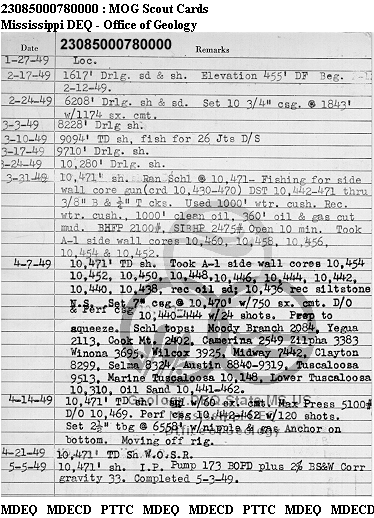 23085000780000 : MOG Scout Cards
Mississippi DEQ - Office of Geology
23085000780000
Date Remarks
1-27-49 Loc.
2-17-49 1617' Drlg. sd & sh. Elevation 455' DF Beg.
2-12-49.
2-24-49 6208' Drlg. sh & sd. Set 10 3/4" csg. @ 1843'
w/1174 sx. cmt.
3-3-49 8228' Drlg sh.
3-10-49 9094' TD sh, fish for 26 Jts D/S
3-17-49 9710' Drlg. sh.
3-24-49 10,280' Drlg. sh.
3-31-49 10,471' sh. Ran Schl @ 10,471- Fishing for side
wall core gun(crd 10,430-470) DST 10,442-471 thru
3/8" B & ¼" T cks. Used 1000' wtr. cush. Rec.
wtr. cush., 1000' clean oil, 360' oil & gas cut
mud. BHFP 2100#, SIBHP 2475# Open 10 min. Took
A-1 side wall cores 10,460, 10,458, 10,456,
10,454 & 10,452.
4-7-49 10,471' TD sh. Took A-1 side wall cores 10,454
10,452, 10,450, 10,448, 10,446, 10,444, 10,442,
10,440, 10,438, rec oil sd; 10,436 rec siltstone
N.S. Set csg @ 10,470' w/750 sx. cmt. D/O
& Perf csg 10,440-444 w/24 shots. Prep to
squeeze. Schl tops: Moody Branch 2084, Yegua
2113, Cook Mt. 2402, Camerina 2549 Zilpha 3383
Winona 3695, Wilcox 3925, Midway 7442, Clayton
8299, Selma 8324, Austin 8840-9319, Tuscaloosa
9513, Marine Tuscaloosa 10,148, Lower Tuscaloosa
10,310, Oil Sand 10,441-462.
4-14-49 10,471' TD sh. w/60 sx. cmt. Max Press 5100#
D/O 10,469. Perf csg 10,442-462 w/120 shots.
Set 2½" tbg @ 6558' w/nipple & gas Anchor on
bottom. Moving off rig.
4-21-49 10,471' TD Sh W.O.S.R.
5-5-49 10,471' sh. I.P. Pump 173 BOPD plus 2% BS&W Corr
gravity 33. Completed 5-3-49.
MDEQ MDECD PTTC MDEQ MDECD PTTC MDEQ MDECD MDEQ